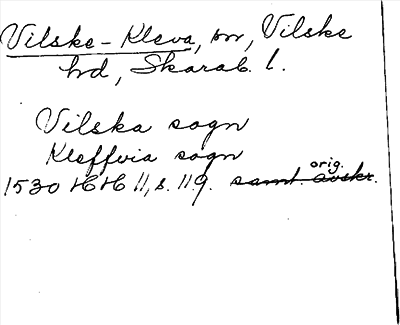 Vilske-Kleva, sn, Vilske
hd, Skarab. l.
Vilska sogn
Kleffvia sogn
1530 HH 11, s. 119. samt. avskr. orig.